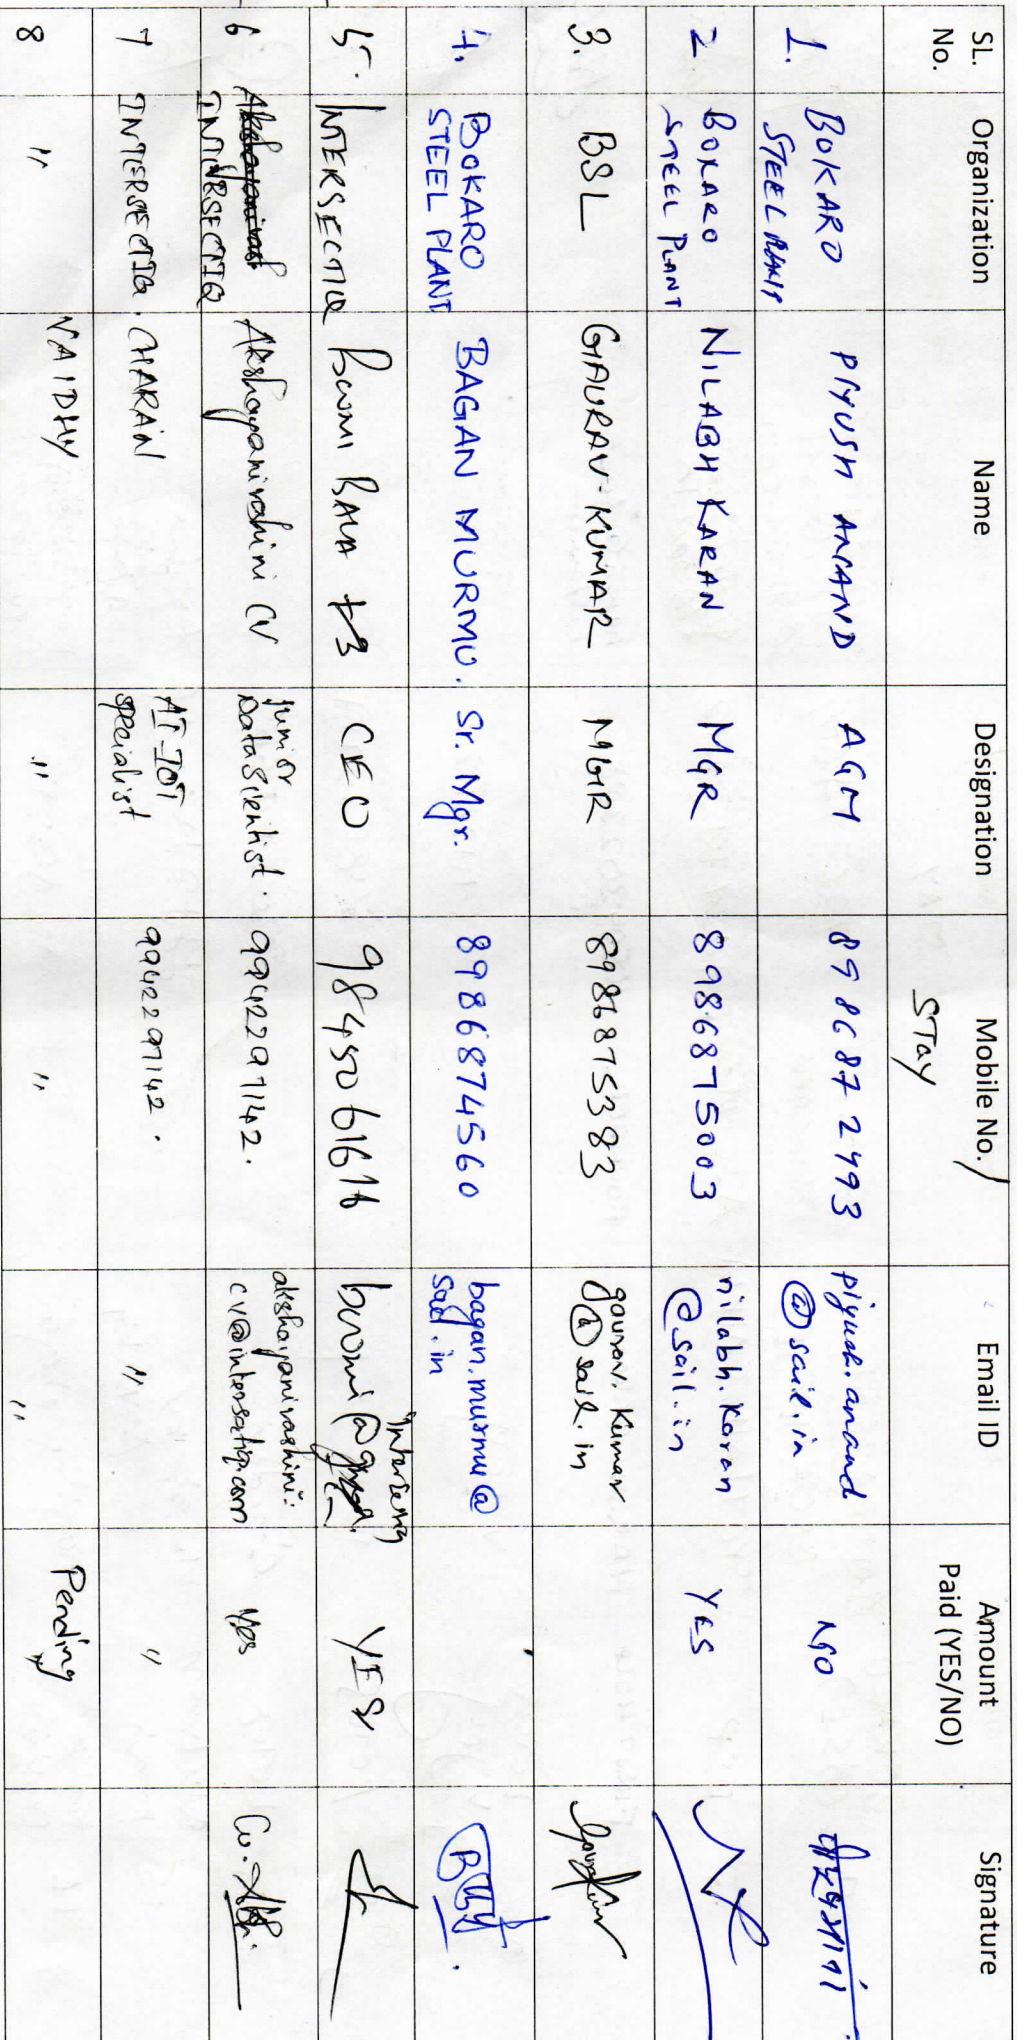 SL. No. Organization Name Designation Mobile No./ STay Email ID Amount Paid (YES/NO) Signature
1. BOKARO STEEL PLANT PIYUSH ANAND AGM 8986872493 piyush.anand @sail.in NO
2 BOKARO STEEL PLANT NILABH KARAN MGR 8986875003 nilabh.karan @sail.in YES
3. BSL GAURAV KUMAR MGR 8986875383 gaurav.kumar @sail.in
4. BOKARO STEEL PLANT BAGAN MURMU. Sr. Mgr. 8986874560 bagan.murmu@ sail.in
5. INTERSECTIQ CEO YES
6 INTERSECTIQ Akshayanivashini CV junior Data Scientist. 9942297142. akshayanivashini. cv@intersectiq.com Yes
7 INTERSECTIQ. CHARAN AI-IOT specialist 9942297142. " "
8 " VAIDHY " " " Pending